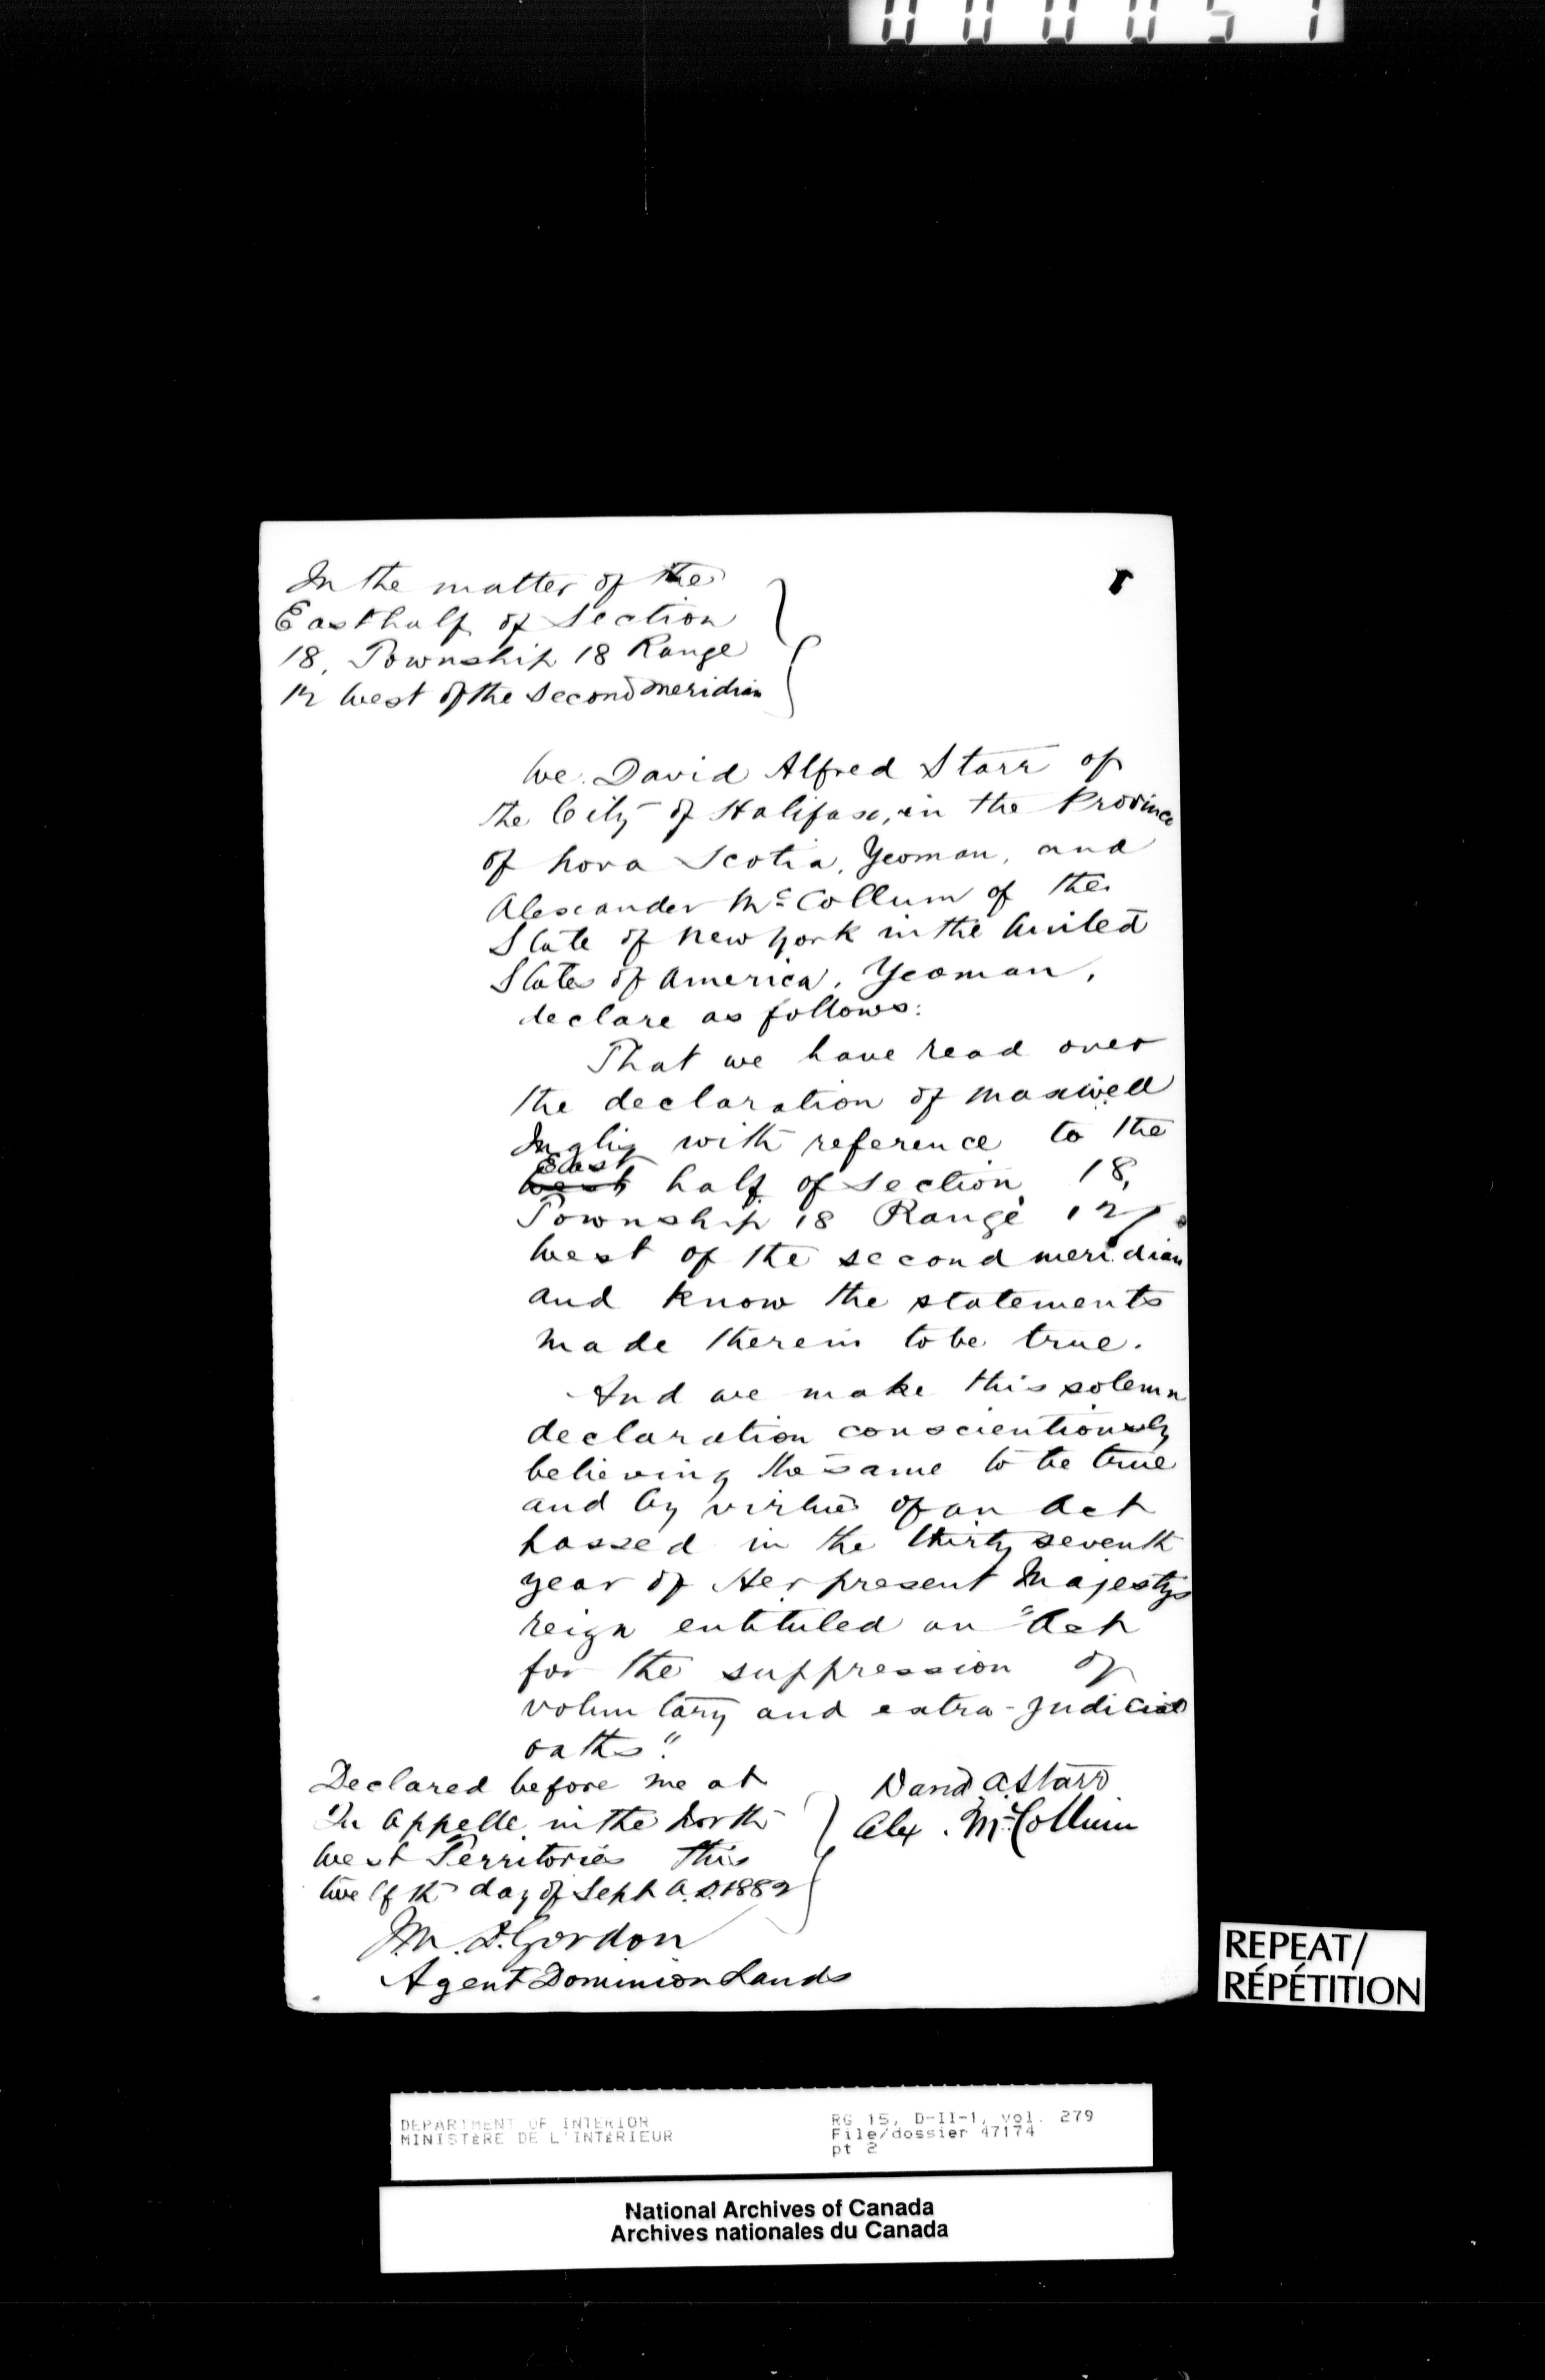 000051
In the matter of the
East half of Section
18, Township 18 Range
12 West of the Second Meridian
We David Alfred Starr of
the City of Halifax, in the Province
of Nova Scotia, Yeoman, and
Alexander McCollum of the
State of New York in the United
States of America, Yeoman,
declare as follows:
That we have read over
the declaration of Maxwell
Inglis with reference to the
East
West half of Section 18,
Township 18 Range 12
West of the second meridian
and know the statements
made therein to be true.
And we make this solemn
declaration conscientiously
believing the same to be true
and by virtue of an Act
passed in the thirty seventh
year of Her present Majestys
reign entituled an "Act
for the suppression of
voluntary and extra-judicial
oaths".
Declared before me at
Qu Appelle in the North
West Territories this
twelfth day of Sept A.D. 1882
David A. Starr
Alex. McCollum
Gordon
Agent Dominion Lands
REPEAT/
RÉPÉTITION
DEPARTMENT OF INTERIOR
MINISTÈRE DE L'INTÉRIEUR
RG 15, D-II-1, vol. 279
File/dossier 47174
pt 2
National Archives of Canada
Archives nationales du Canada